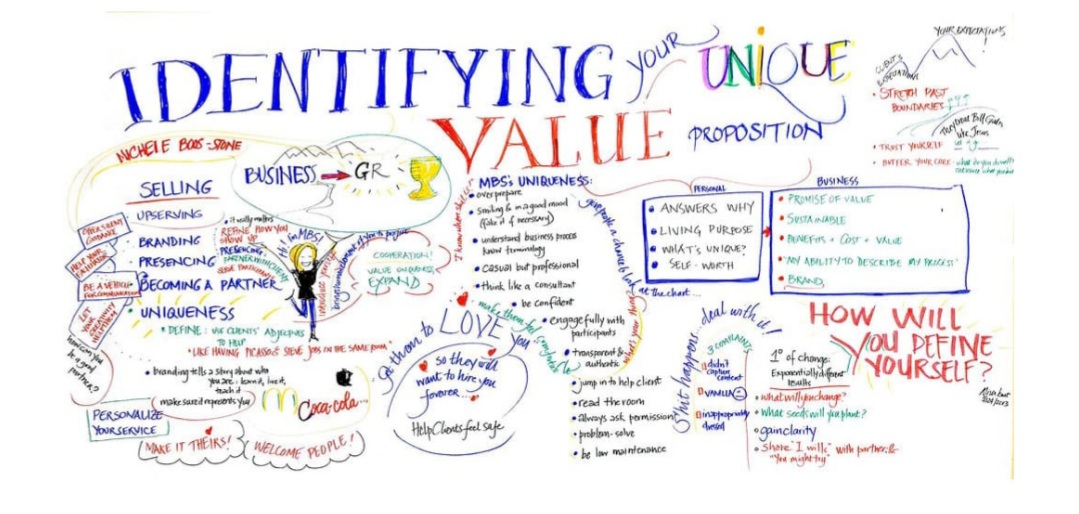 IDENTIFYING YOUR UNIQUE
VALUE PROPOSITION
YOUR EXPECTATIONS!
CLIENT'S
• STRETCH PAST
BOUNDARIES
They trust Bill Gates
like Jesus
• TRUST YOURSELF
• BUFFER YOUR CORE -
BUSINESS → GR
SELLING
UPSERVING
BRANDING
PRESENCING
BECOMING A PARTNER
UNIQUENESS
OFFER SILENT
GUIDANCE
HELP YOUR
BE A VEHICLE
FOR COMMUNICATION
LET
YOUR
HELP THEM
how can you
be a good
partner?
• it really matters
REFINE HOW YOU
SHOW UP
PRESENCING:
PARTNER WITH CLIENT
Hi, I'm MBS!
COOPERATION!
EXPAND
• DEFINE: USE CLIENTS' ADJECTIVES
TO HELP
"LIKE HAVING PICASSO & STEVE JOBS IN THE SAME ROOM"
• branding tells a story about who
you are: learn it, live it,
teach it
make sure it represents you
Coca-cola...
PERSONALIZE
YOUR SERVICE
MAKE IT THEIRS!
WELCOME PEOPLE!
Get them to LOVE you
so they will
want to hire you
forever...
Help Clients feel safe
MBS's UNIQUENESS:
• over prepare
• Smiling & in a good mood
(fake it if necessary)
• understand business process
know terminology
• Casual but professional
• think like a consultant
• be confident
• engage fully with
participants
• transparent &
authentic
• jump in to help client
• read the room
• always ask permission
• problem-solve
• be low maintenance
I know where she is
make them feel comfortable
give people a chance to look at the chart...
PERSONAL
• ANSWERS WHY
• LIVING PURPOSE
• WHAT'S UNIQUE?
• SELF-WORTH
BUSINESS
• PROMISE OF VALUE
• SUSTAINABLE
• BENEFITS + COST + VALUE
• "MY ABILITY TO DESCRIBE MY PROCESS"
• BRAND
Shit happens... deal with it!
3 COMPLAINTS
didn't
capture
content
VANILLA
inappropriately
dressed
HOW WILL
YOU DEFINE
YOURSELF?
1° of change:
Exponentially different
results
• what will you change?
• What seeds will you plant?
• gain clarity
• Share "I wills" with partner &
"You might try"